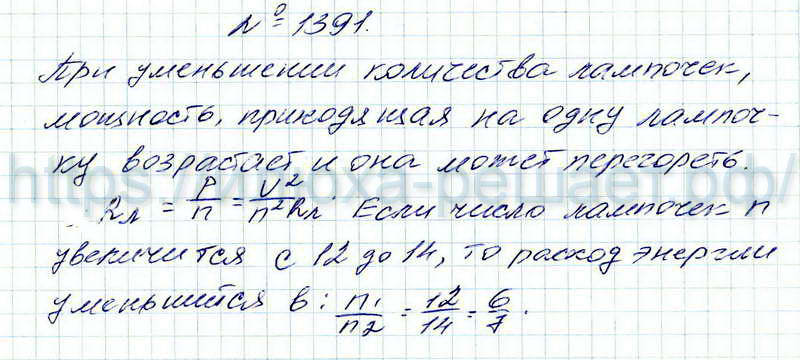 № 1391.
При уменьшении количества лампочек,
мощность, приходящая на одну лампоч-
ку возрастает и она может перегореть.
Rл = P/n = U²/n²Rл. Если число лампочек n
увеличится с 12 до 14, то расход энергии
уменьшится в: n₁/n₂ = 12/14 = 6/7.